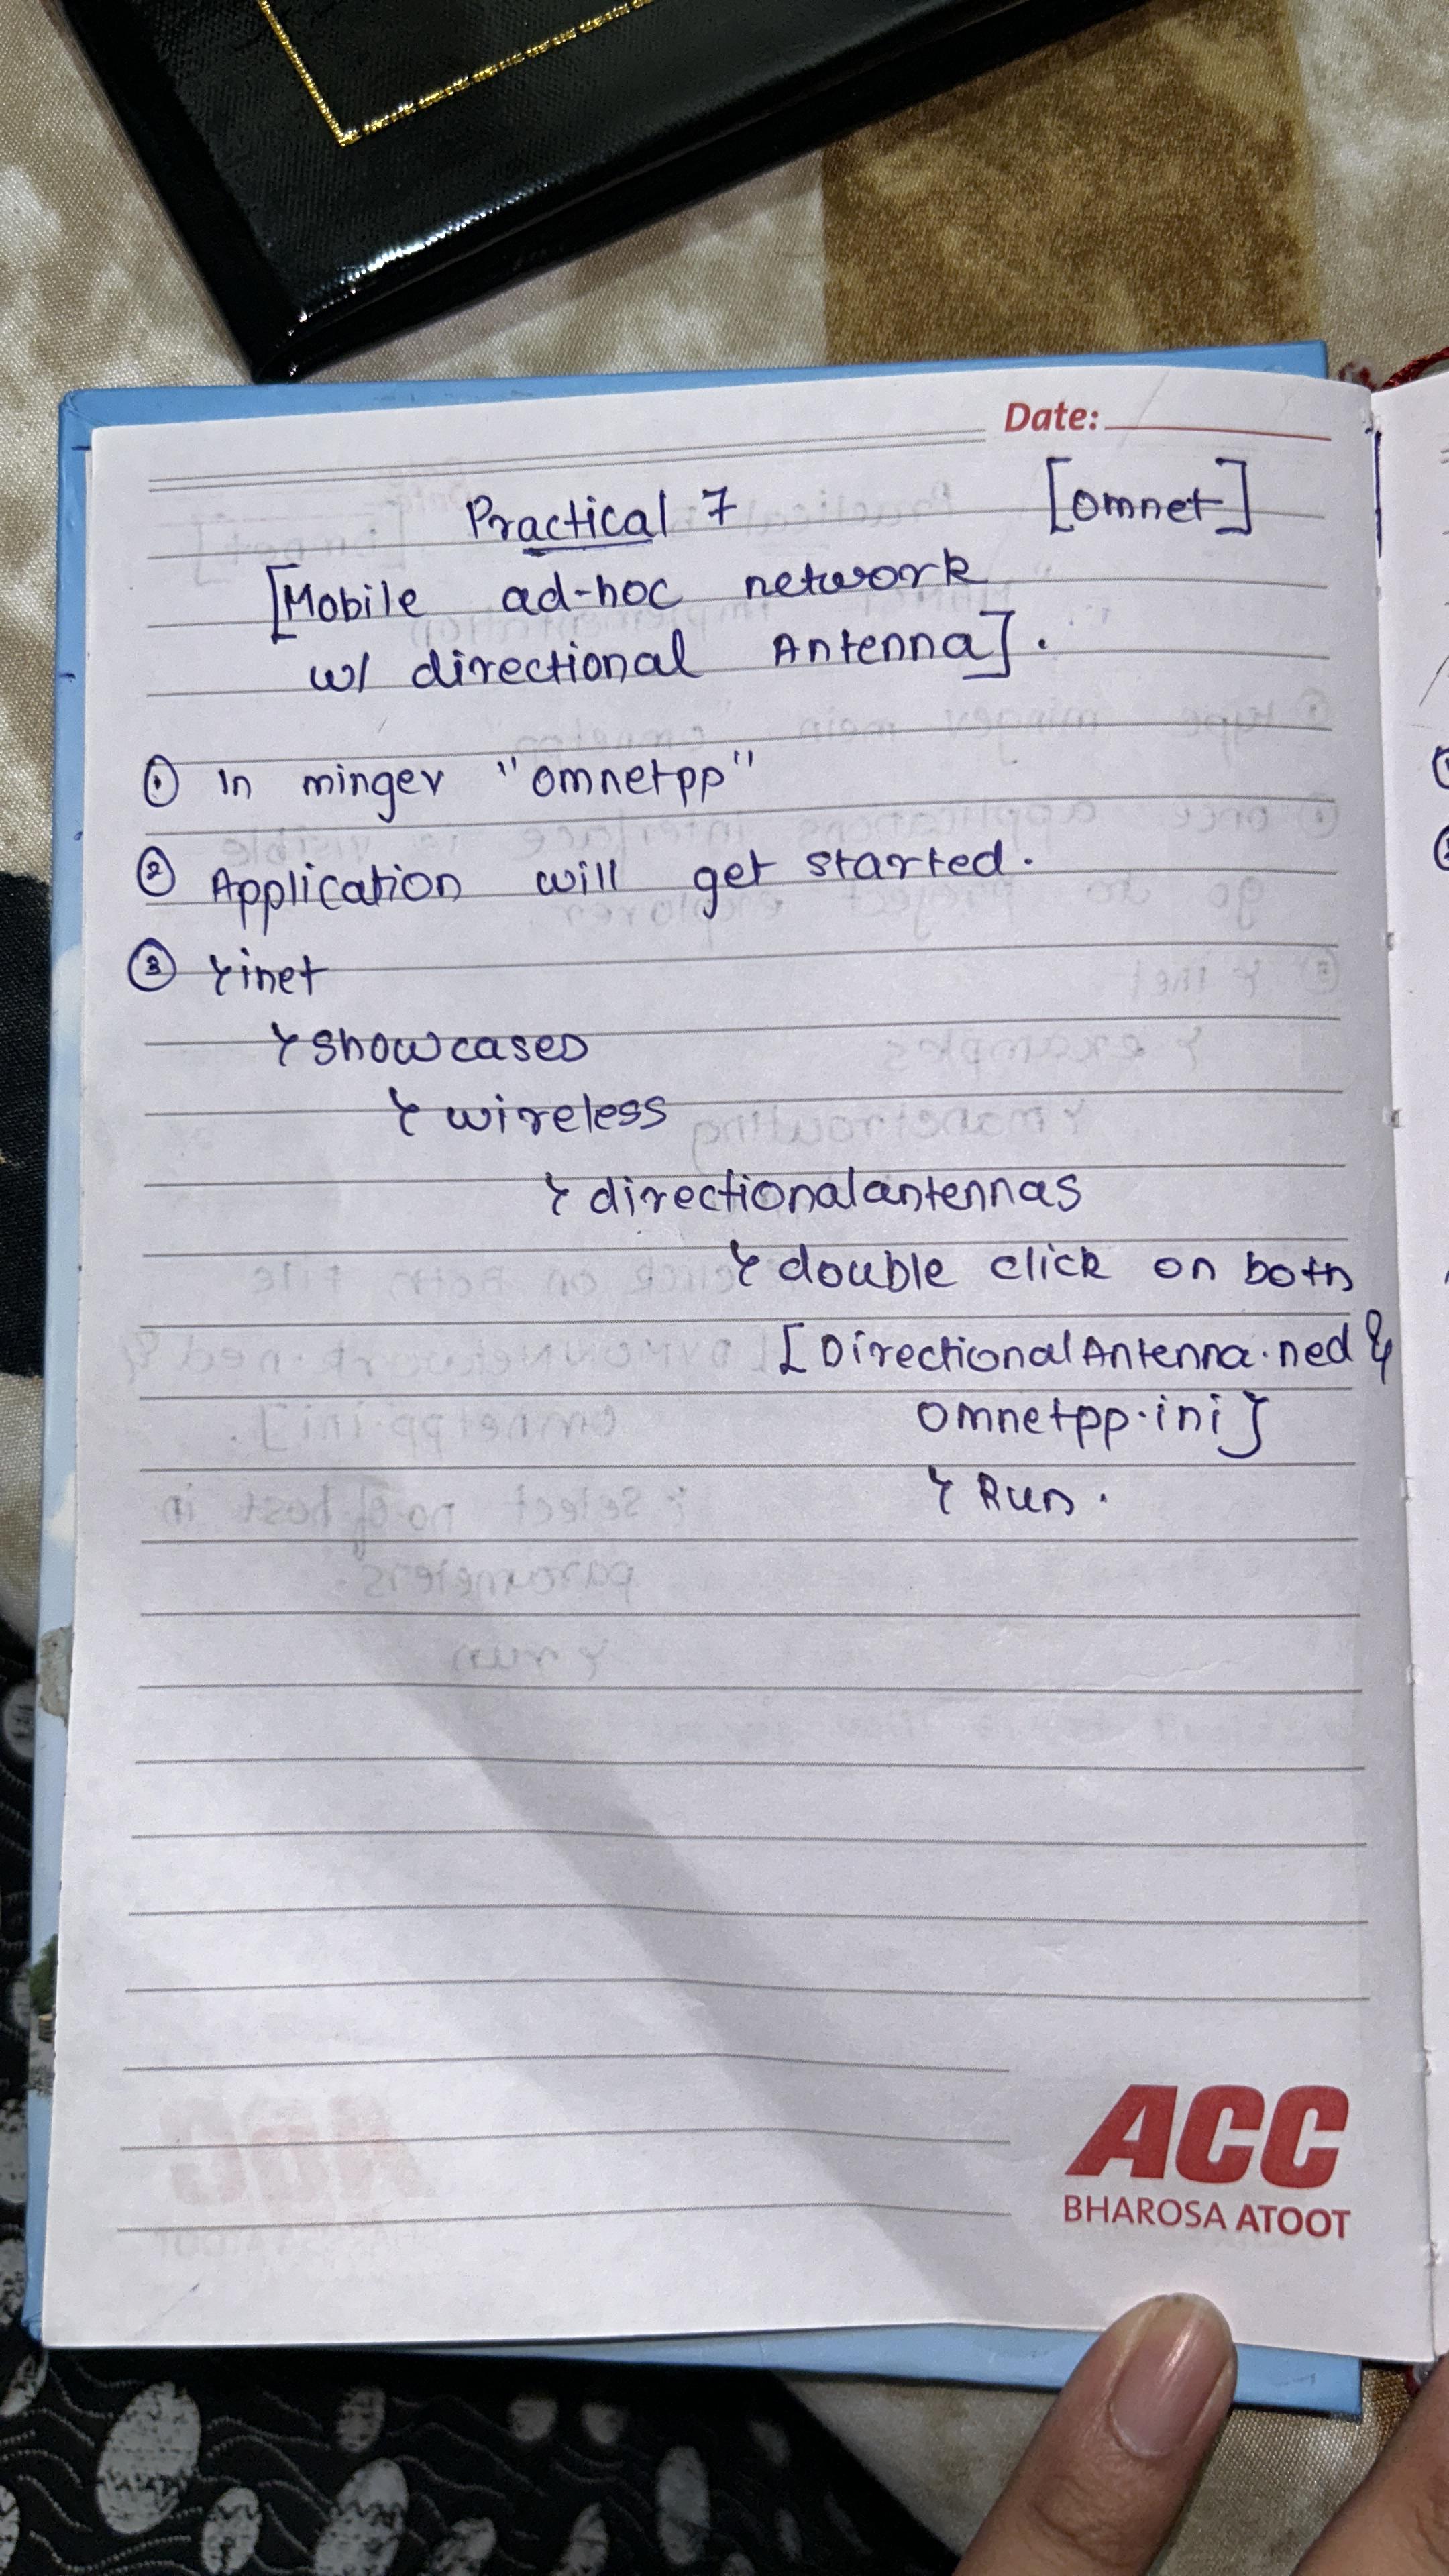 Date:
Practical 7 [omnet]
[Mobile ad-hoc network
w/ directional Antenna].
① In minger "omnetpp"
② Application will get started.
③ > inet
> showcases
> wireless
> directionalantennas
> double click on both
[DirectionalAntenna.ned &
omnetpp.ini]
> Run.
ACC
BHAROSA ATOOT